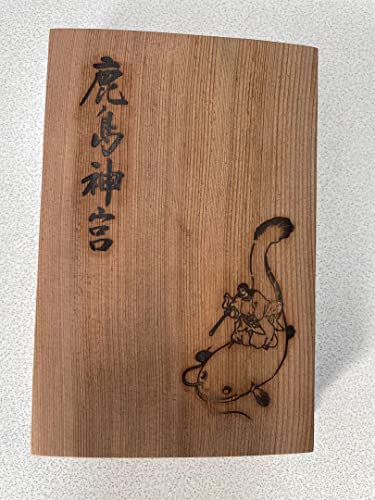 鹿島神宮